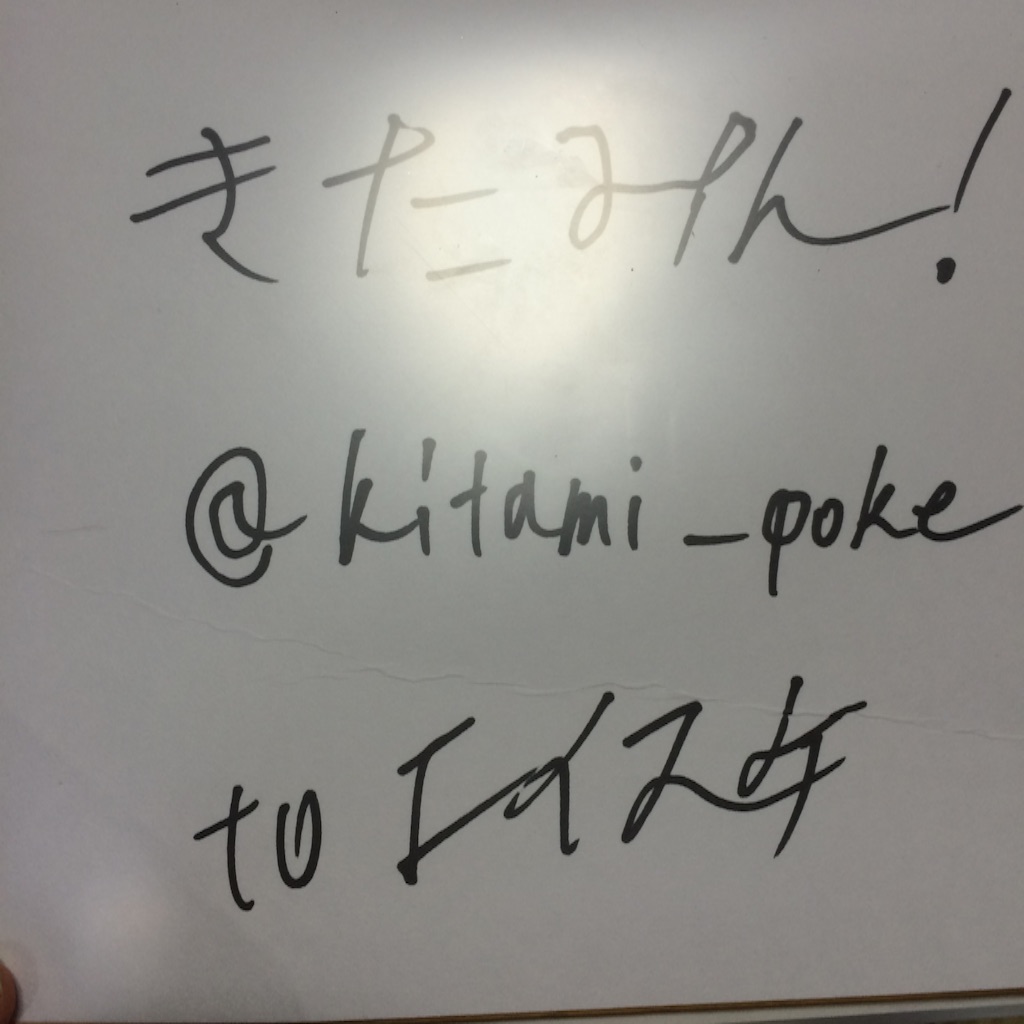 きたみん!
@kitami_poke
to エイスケ